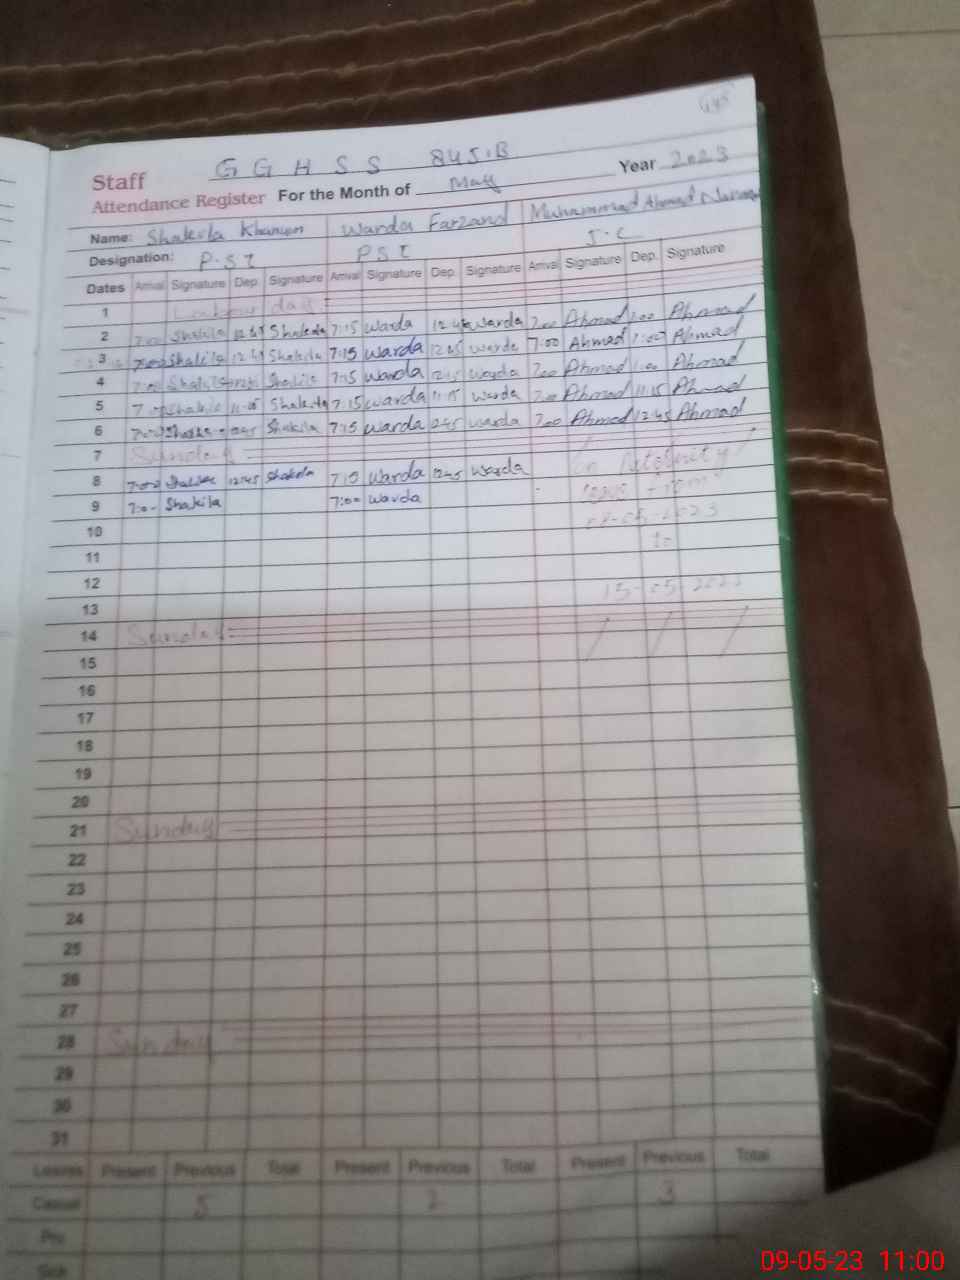 G G H S S 845.B
Staff
Attendance Register For the Month of May Year 2023
Name: Shakila Khanum Warda Farzand Muhammad Ahmad
Designation: P.S.T PST J.C
Dates Arrival Signature Dep. Signature Arrival Signature Dep. Signature Arrival Signature Dep. Signature
1 Labour day
2 7:00 Shakila Shakila 7:15 Warda 12:45 Warda 7:00 Ahmad 1:00 Ahmad
3 7:00 Shakila Shakila 7:15 Warda 12:45 Warda 7:00 Ahmad 1:00 Ahmad
4 7:00 Shakila Shakila 7:15 Warda Warda 7:00 Ahmad 1:00 Ahmad
5 7:00 Shakila 11:05 Shakila 7:15 Warda 11:15 Warda 7:00 Ahmad 11:15 Ahmad
6 7:00 Shakila Shakila 7:15 Warda 12:45 Warda 7:00 Ahmad 12:45 Ahmad
7 Sunday
8 7:00 Shakila 12:45 Shakila Warda 12:45 Warda
9 7:00 Shakila 7:00 Warda
10
11 to
12
13 15-05-2023
14 Sunday
15
16
17
18
19
20
21 Sunday
22
23
24
25
26
27
28 Sunday
29
30
31
Leaves Present Previous Total Present Previous Total Present Previous Total
Casual 5 2 3
Pre
Sick
09-05-23 11:00